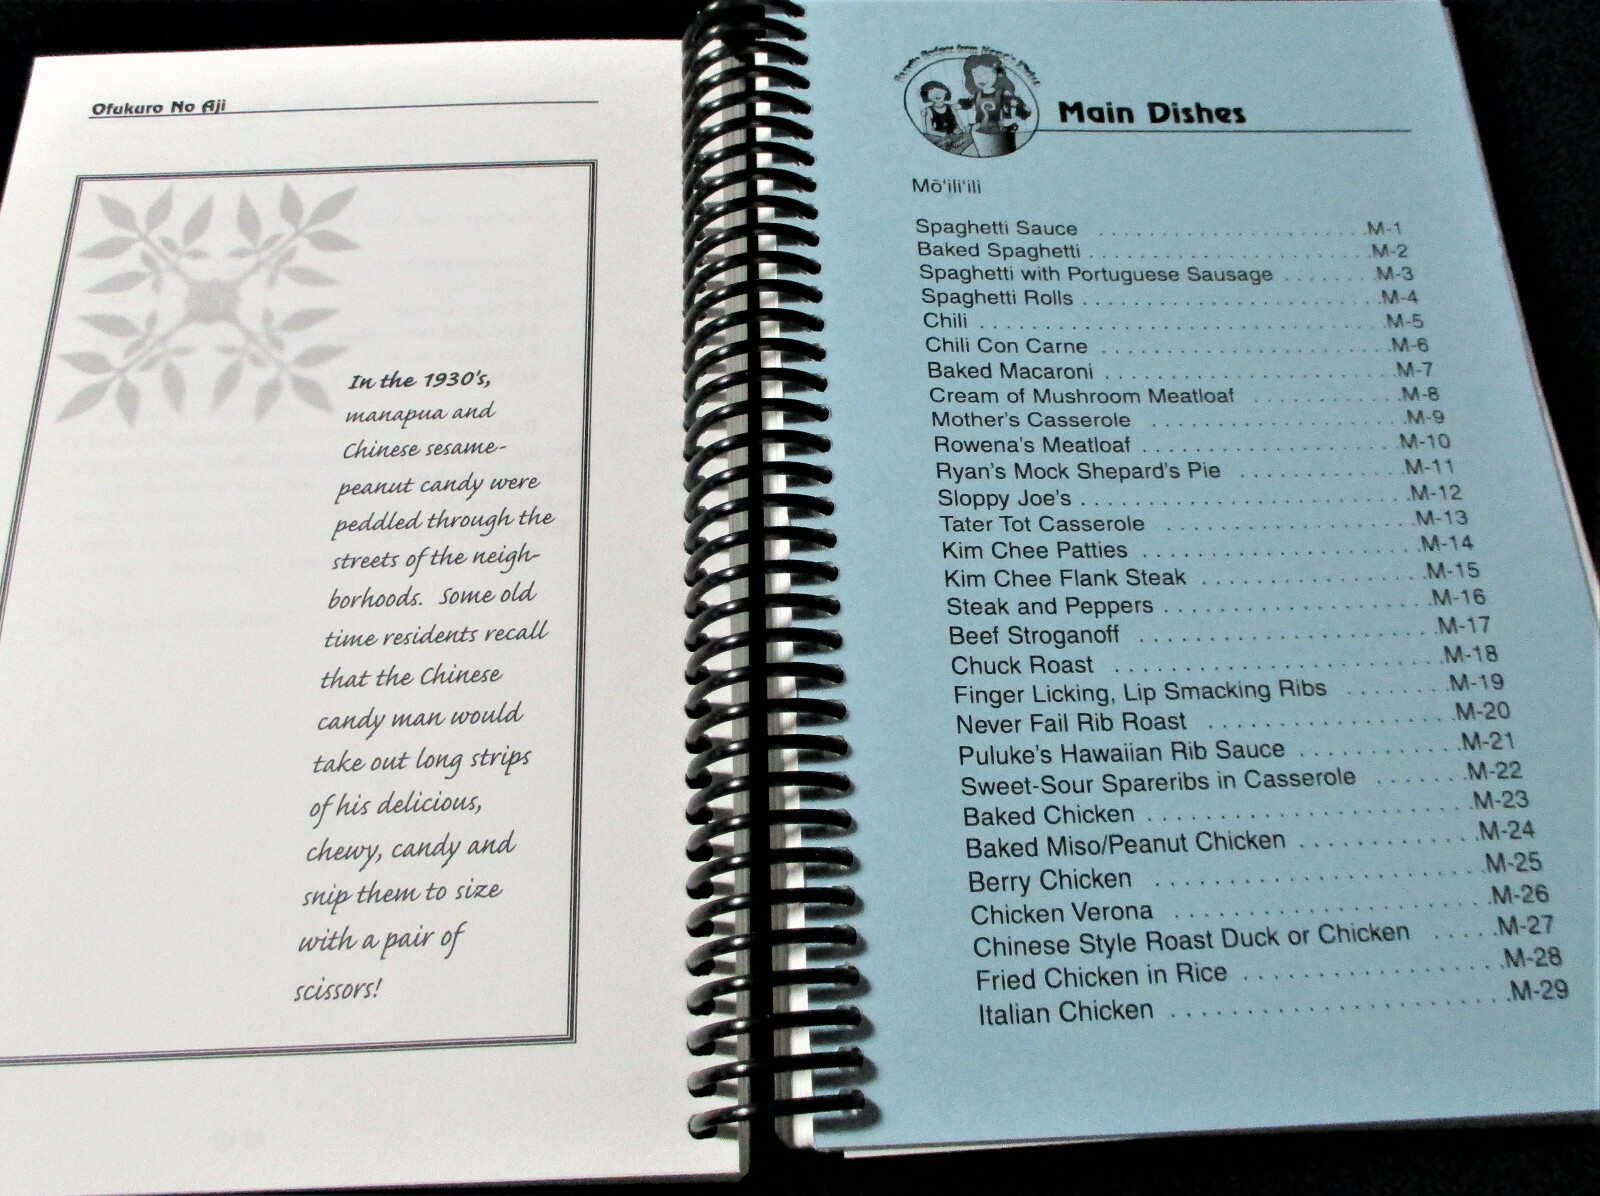 Ofukuro No Aji
In the 1930's,
manapua and
Chinese sesame-
peanut candy were
peddled through the
streets of the neigh-
borhoods. Some old
time residents recall
that the Chinese
candy man would
take out long strips
of his delicious,
chewy, candy and
snip them to size
with a pair of
scissors!
Main Dishes
Mō'ili'ili
Spaghetti Sauce . . . . . . . . . . . . . . . . . . . . . .M-1
Baked Spaghetti . . . . . . . . . . . . . . . . . . . . . .M-2
Spaghetti with Portuguese Sausage . . . . . . .M-3
Spaghetti Rolls . . . . . . . . . . . . . . . . . . . . . . .M-4
Chili . . . . . . . . . . . . . . . . . . . . . . . . . . . . . . .M-5
Chili Con Carne . . . . . . . . . . . . . . . . . . . . . .M-6
Baked Macaroni . . . . . . . . . . . . . . . . . . . . . .M-7
Cream of Mushroom Meatloaf . . . . . . . . . . . .M-8
Mother's Casserole . . . . . . . . . . . . . . . . . . .M-9
Rowena's Meatloaf . . . . . . . . . . . . . . . . . . .M-10
Ryan's Mock Shepard's Pie . . . . . . . . . . . . .M-11
Sloppy Joe's . . . . . . . . . . . . . . . . . . . . . . . .M-12
Tater Tot Casserole . . . . . . . . . . . . . . . . . .M-13
Kim Chee Patties . . . . . . . . . . . . . . . . . . . .M-14
Kim Chee Flank Steak . . . . . . . . . . . . . . . .M-15
Steak and Peppers . . . . . . . . . . . . . . . . . . .M-16
Beef Stroganoff . . . . . . . . . . . . . . . . . . . . .M-17
Chuck Roast . . . . . . . . . . . . . . . . . . . . . . .M-18
Finger Licking, Lip Smacking Ribs . . . . . . . .M-19
Never Fail Rib Roast . . . . . . . . . . . . . . . . .M-20
Puluke's Hawaiian Rib Sauce . . . . . . . . . . .M-21
Sweet-Sour Spareribs in Casserole . . . . . . .M-22
Baked Chicken . . . . . . . . . . . . . . . . . . . . . .M-23
Baked Miso/Peanut Chicken . . . . . . . . . . . .M-24
Berry Chicken . . . . . . . . . . . . . . . . . . . . . .M-25
Chicken Verona . . . . . . . . . . . . . . . . . . . . .M-26
Chinese Style Roast Duck or Chicken . . . . .M-27
Fried Chicken in Rice . . . . . . . . . . . . . . . . .M-28
Italian Chicken . . . . . . . . . . . . . . . . . . . . . .M-29